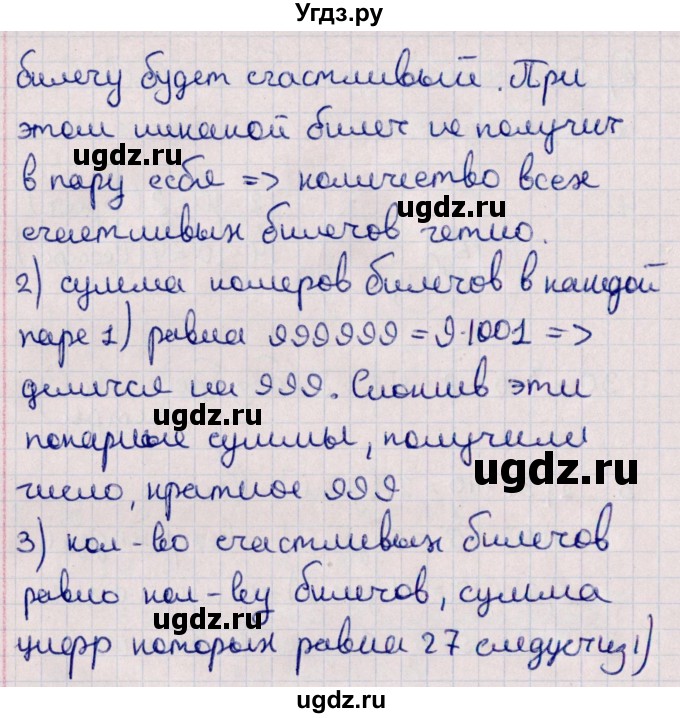 Угдз.ру
билету будет счастливый. При
этом никакой билет не получит
ugdz.ru
в пару себя => количество всех
ugdz.ru
счастливых билетов четно.
2) сумма номеров билетов в каждой
паре 1) равна 999999 = 9·1001 =>
делится на 999. Сложив эти
ugdz.ru
попарные суммы, получили
ugdz.ru
число, кратное 999
3) кол-во счастливых билетов
равно кол-ву билетов, сумма
ugdz.ru
цифр которых равна 27 следует из 1)
ugdz.ru